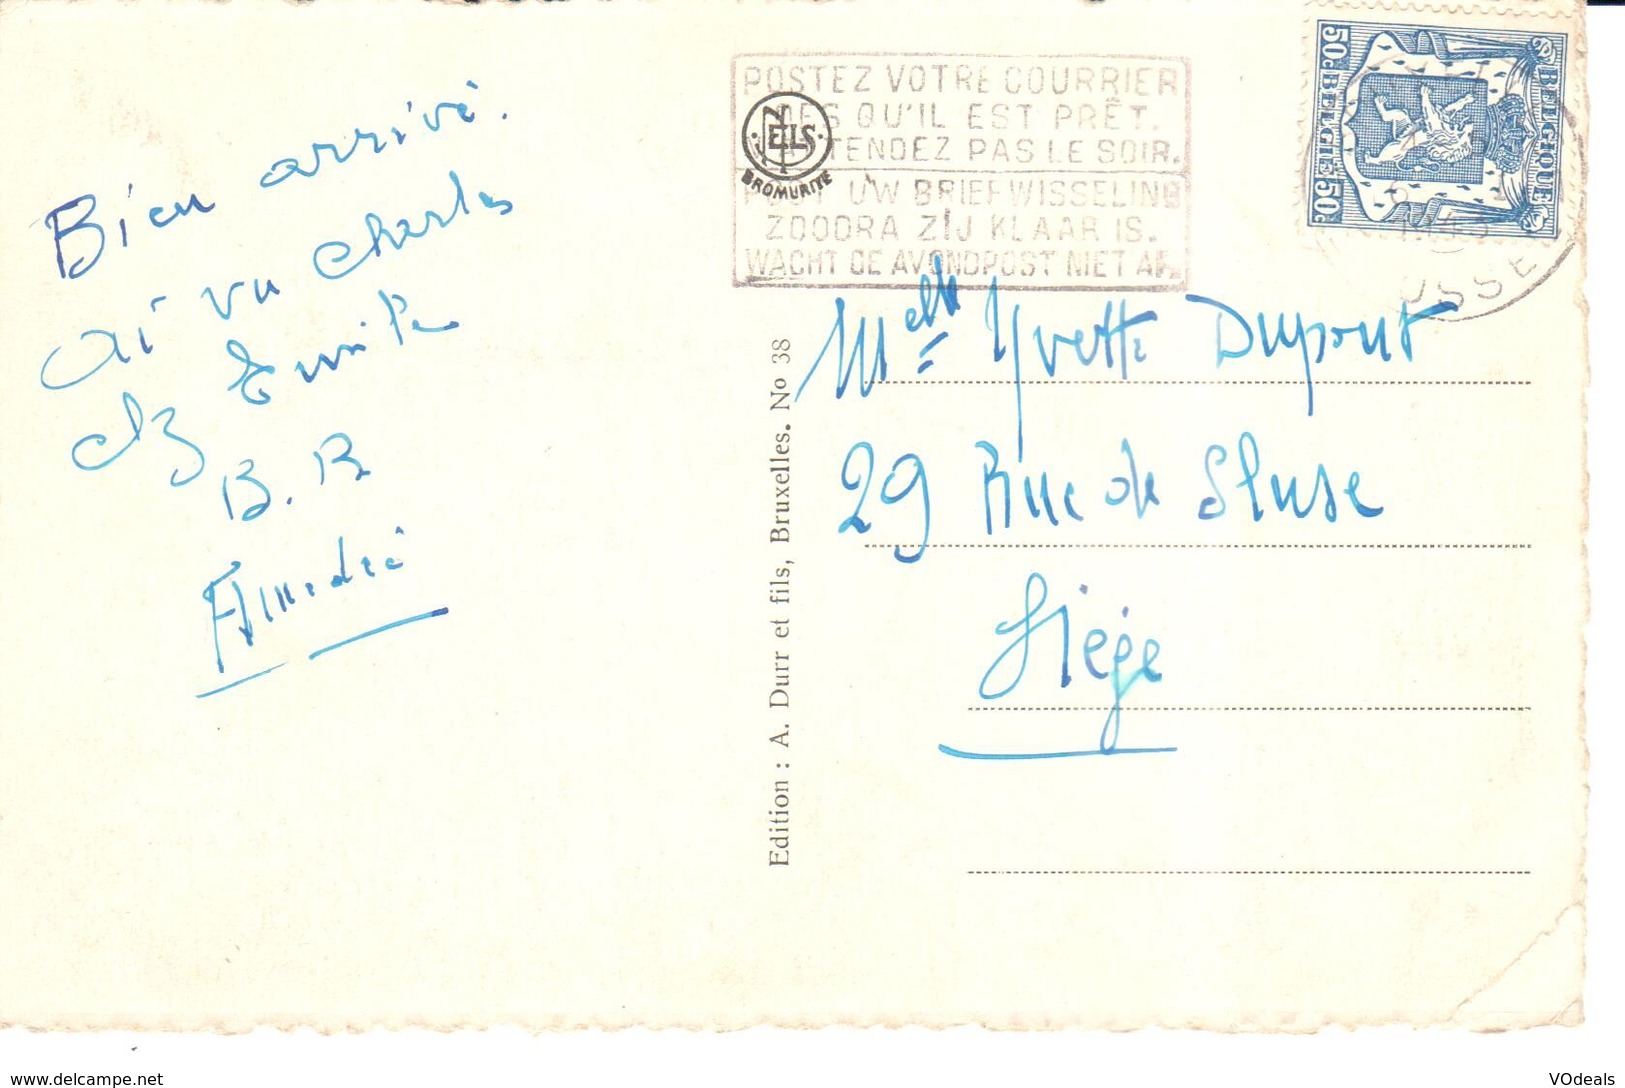 Bien arrivé.
ai vu Charles
chz Emile
B. B
Amedée
POSTEZ VOTRE COURRIER
DES QU'IL EST PRÊT.
N'ATTENDEZ PAS LE SOIR.
POST UW BRIEFWISSELING
ZOODRA ZIJ KLAAR IS.
WACHT DE AVONDPOST NIET AF.
NELS
BROMURITE
BELGIQUE
BELGIE
50c
50c
Edition : A. Durr et fils, Bruxelles. No 38
Melle Yvette Dupont
29 Rue de Sluse
Liége
www.delcampe.net
VOdeals